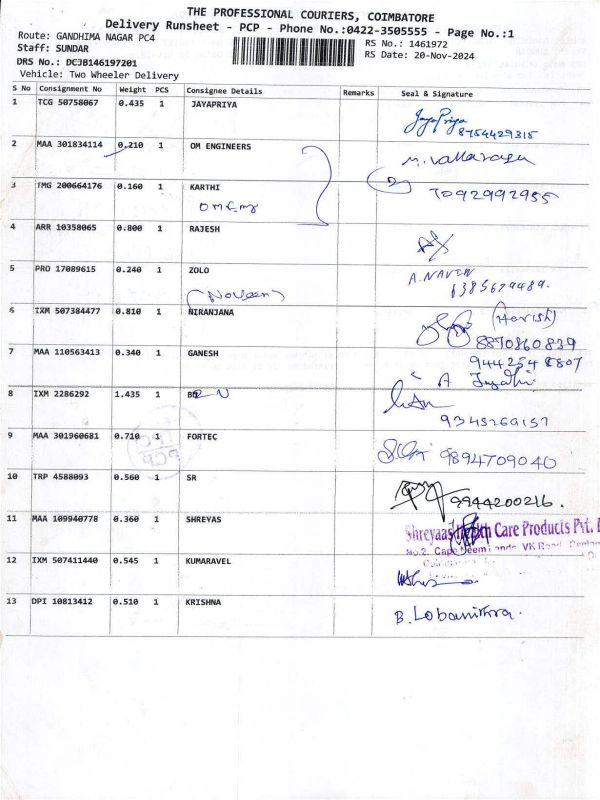 THE PROFESSIONAL COURIERS, COIMBATORE
Delivery Runsheet - PCP - Phone No.:0422-3505555 - Page No.:1
Route: GANDHIMA NAGAR PC4
RS No.: 1461972
Staff: SUNDAR
RS Date: 20-Nov-2024
DRS No.: DCJB146197201
Vehicle: Two Wheeler Delivery
S No Consignment No Weight PCS Consignee Details Remarks Seal & Signature
1 TCG 50758067 0.435 1 JAYAPRIYA
JayaPriya
8754429315
2 MAA 301834114 0.210 1 OM ENGINEERS
3 TMG 200664176 0.160 1 KARTHI
7092992955
4 ARR 10358065 0.800 1 RAJESH
5 PRO 17089615 0.240 1 ZOLO
A. NAVEEN
(Naveen)
6 IXM 507384477 0.810 1 NIRANJANA
(Harish)
8870860839
7 MAA 110563413 0.340 1 GANESH
8 IXM 2286292 1.435 1
9 MAA 301960681 0.710 1 FORTEC
9894709040
10 TRP 4588093 0.560 1 SR
9944200216.
11 MAA 109940778 0.360 1 SHREYAS
Shreyaas Health Care Products Pvt.
12 IXM 507411440 0.545 1 KUMARAVEL
13 DPI 10813412 0.510 1 KRISHNA